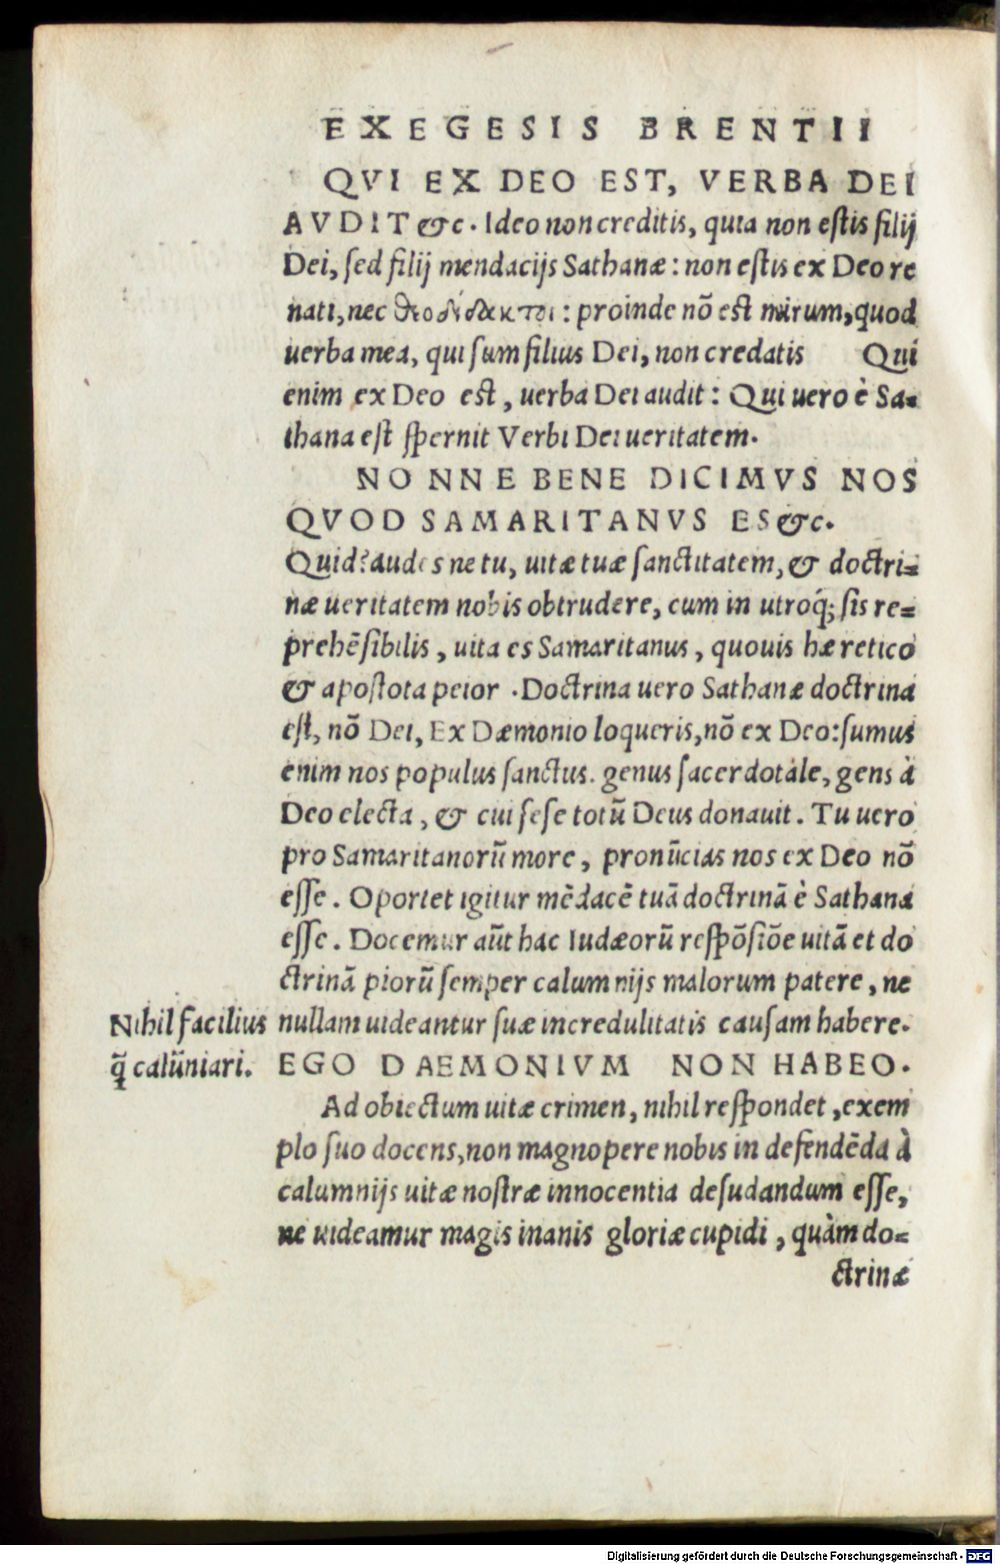 EXEGESIS BRENTII
QVI EX DEO EST, VERBA DEI
AVDIT &c. Ideo non creditis, quia non estis filij
Dei, sed filij mendacijs Sathanæ: non estis ex Deo re
nati, nec θεοδίδακτοι: proinde nō est mirum, quod
uerba mea, qui sum filius Dei, non credatis Qui
enim ex Deo est, uerba Dei audit: Qui uero è Sa-
thana est spernit Verbi Dei ueritatem.
NONNE BENE DICIMVS NOS
QVOD SAMARITANVS ES &c.
Quid? audes ne tu, uitæ tuæ sanctitatem, & doctri-
næ ueritatem nobis obtrudere, cum in utroq; sis re-
prehēsibilis, uita es Samaritanus, quouis hæretico
& apostota peior. Doctrina uero Sathanæ doctrina
est, nō Dei, Ex Dæmonio loqueris, nō ex Deo: sumus
enim nos populus sanctus. genus sacerdotale, gens à
Deo electa, & cui sese totū Deus donauit. Tu uero
pro Samaritanorū more, pronūcias nos ex Deo nō
esse. Oportet igitur mēdacē tuā doctrinā è Sathana
esse. Docemur aūt hac Iudæorū respōsiōe uitā et do
ctrinā piorū semper calumnijs malorum patere, ne
nullam uideantur suæ incredulitatis causam habere.
Nihil facilius
q̄ calūniari.
EGO DAEMONIVM NON HABEO.
Ad obiectum uitæ crimen, nihil respondet, exem
plo suo docens, non magnopere nobis in defendēda à
calumnijs uitæ nostræ innocentia desudandum esse,
ne uideamur magis inanis gloriæ cupidi, quàm do-
ctrinæ
Digitalisierung gefördert durch die Deutsche Forschungsgemeinschaft - DFG